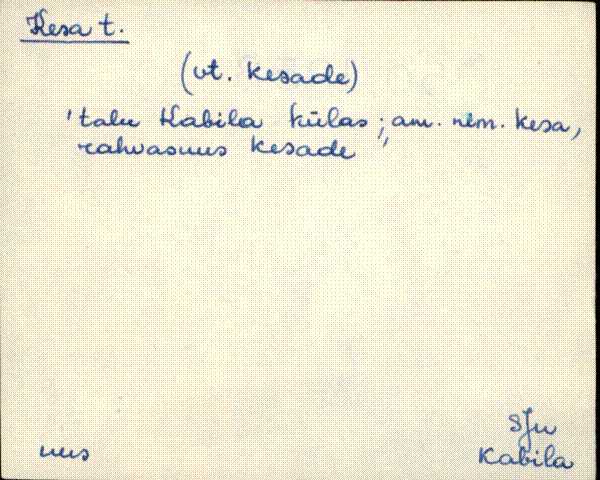 Kesa t.
(vt. kesade)
'talu Kabila külas; am. nim. kesa,
rahvasuus kesade'
SJn
Kabila